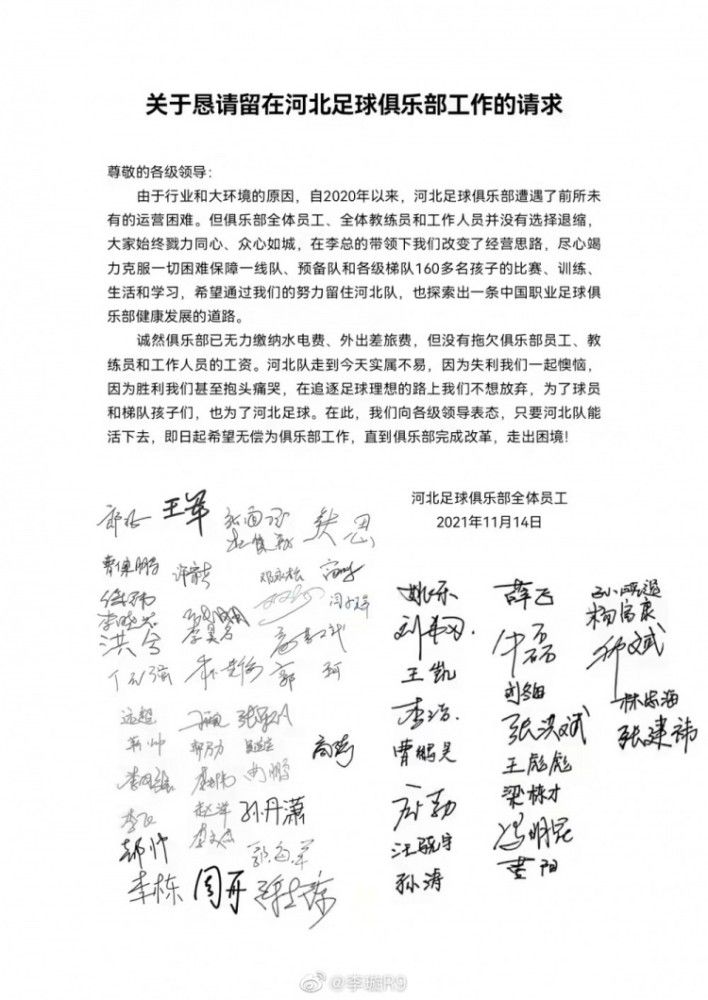 关于恳请留在河北足球俱乐部工作的请求
尊敬的各级领导：
由于行业和大环境的原因，自2020年以来，河北足球俱乐部遭遇了前所未
有的运营困难。但俱乐部全体员工、全体教练员和工作人员并没有选择退缩，
大家始终戮力同心、众心如城，在李总的带领下我们改变了经营思路，尽心竭
力克服一切困难保障一线队、预备队和各级梯队160多名孩子的比赛、训练、
生活和学习，希望通过我们的努力留住河北队，也探索出一条中国职业足球俱
乐部健康发展的道路。
诚然俱乐部已无力缴纳水电费、外出差旅费，但没有拖欠俱乐部员工、教
练员和工作人员的工资。河北队走到今天实属不易，因为失利我们一起懊恼，
因为胜利我们甚至抱头痛哭，在追逐足球理想的路上我们不想放弃，为了球员
和梯队孩子们，也为了河北足球。在此，我们向各级领导表态，只要河北队能
活下去，即日起希望无偿为俱乐部工作，直到俱乐部完成改革，走出困境！
河北足球俱乐部全体员工
2021年11月14日
王军
洪兮
郭珂
孙丹潇
李栋
周丹
王凯
李浩
曹鹏昊
汪骁宇
孙涛
薛飞
张洪斌
王彪彪
梁栋才
冯明昆
杨富康
林忠海
张建祎
@李璇R9